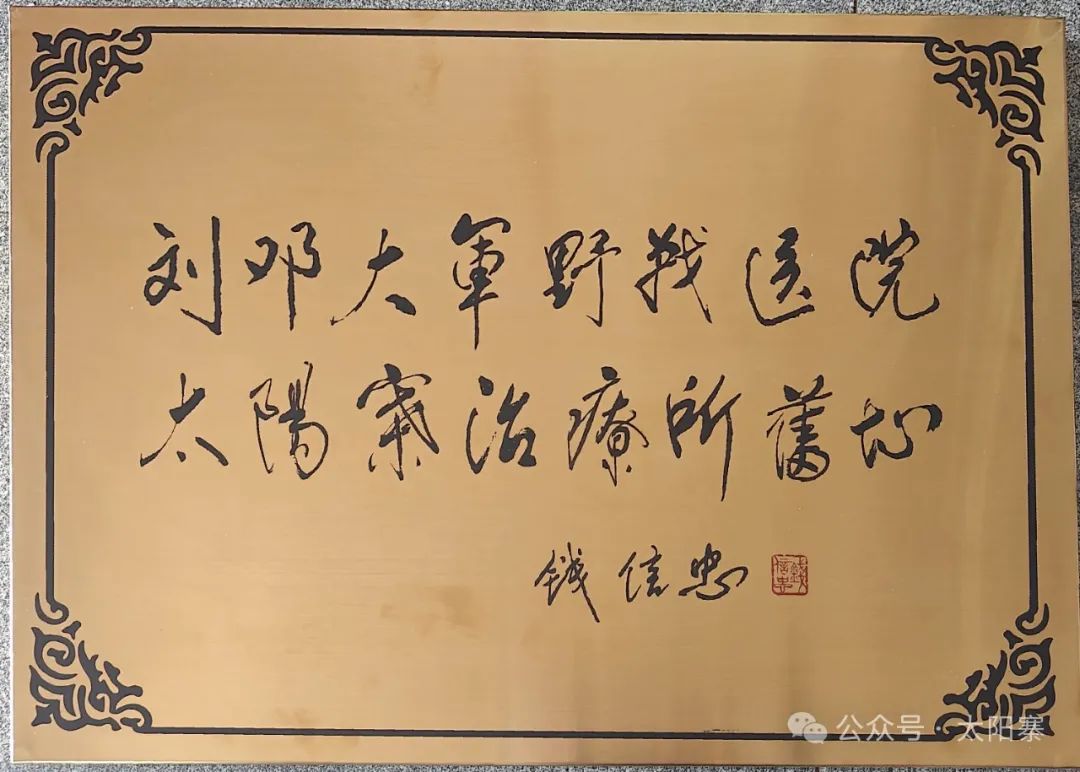 刘邓大軍野战医院
太陽寨治療所舊址
钱信忠
钱信忠
公众号 · 太阳寨